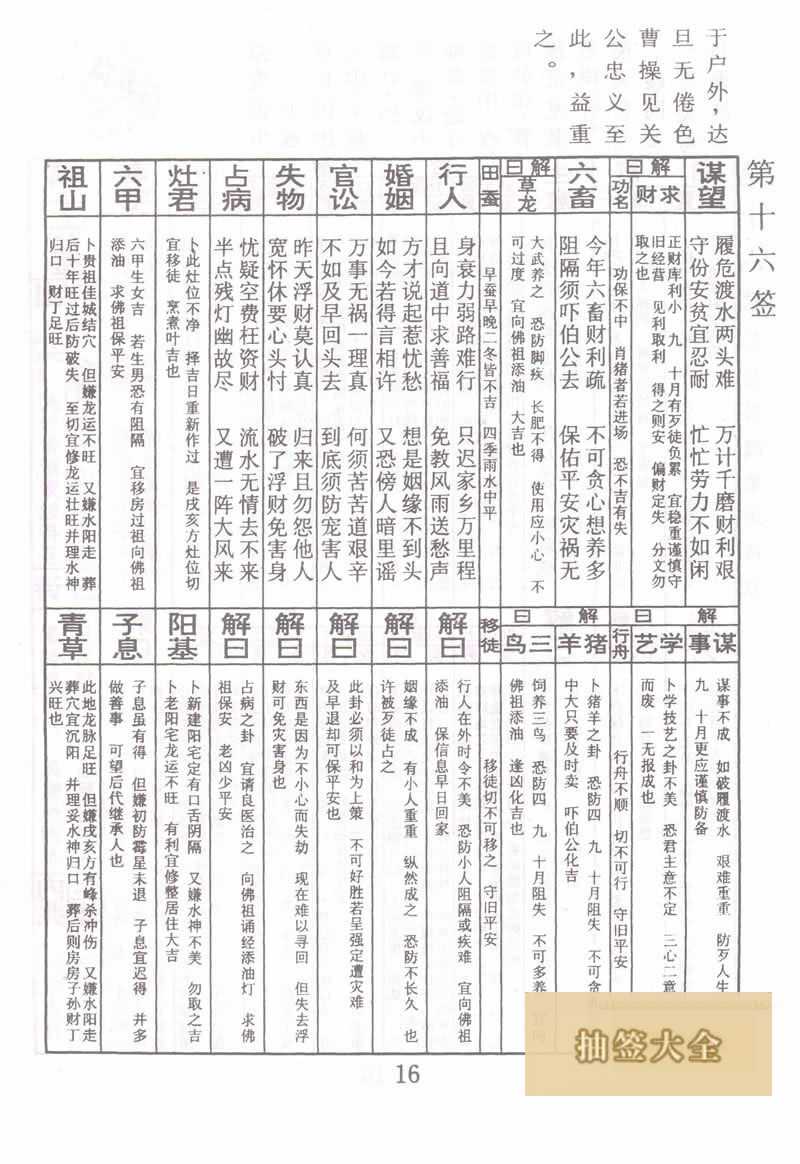 于户外，达
旦无倦色
曹操见关
公忠义至
此，益重
之。
第十六签
谋望
履危渡水两头难 万计千磨财利艰
守份安贫宜忍耐 忙忙劳力不如闲
解曰
求财
正财库利小 九 十月有歹徒负累 宜稳重谨慎守
旧经营 见利取利 得之则安 偏财定失 分文勿
取之也
功名
功保不中 肖猪者若进场 恐不吉有失
六畜
今年六畜财利疏 不可贪心想养多
阻隔须吓伯公去 保佑平安灾祸无
解曰
草龙
大武养之 恐防脚疾 长肥不得 使用应小心 不
可过度 宜向佛祖添油 大吉也
田蚕
早蚕早晚二冬皆不吉 四季雨水中平
行人
身衰力弱路难行 只迟家乡万里程
且向道中求善福 免教风雨送愁声
婚姻
方才说起惹忧愁 想是姻缘不到头
如今若得言相许 又恐傍人暗里谣
官讼
万事无祸一理真 何须苦苦道艰辛
不如及早回头去 到底须防宠害人
失物
昨天浮财莫认真 归来且勿怨他人
宽怀休要心头忖 破了浮财免害身
占病
忧疑空费枉资财 流水无情去不来
半点残灯幽故尽 又遭一阵大风来
灶君
卜此灶位不净 择吉日重新作过 是戌亥方灶位切
宜移徒 烹煮叶吉也
六甲
六甲生女吉 若生男恐有阻隔 宜移房过祖向佛祖
添油 求佛祖保平安
祖山
卜贵祖佳城结穴 但嫌龙运不旺 又嫌水阳走 葬
后十年旺过后防破失 至切宜修龙运壮旺并理水神
归口 财丁足旺
解曰
谋事
谋事不成 如破履渡水 艰难重重 防歹人生
九 十月更应谨慎防备
学艺
卜学技艺之卦不美 恐君主意不定 三心二意
而废 一无报成也
行舟
行舟不顺 切不可行 守旧平安
解曰
猪羊
卜猪羊之卦 恐防四 九 十月阻失 不可贪
中大只要及时卖 吓伯公化吉
三鸟
饲养三鸟 恐防四 九 十月阻失 不可多养
佛祖添油 逢凶化吉也
移徒
移徒切不可移之 守旧平安
解曰
行人在外时令不美 恐防小人阻隔或疾难 宜向佛祖
添油 保信息早日回家
解曰
姻缘不成 有小人重重 纵然成之 恐防不长久 也
许被歹徒占之
解曰
此卦必须以和为上策 不可好胜若呈强定遭灾难
及早退却可保平安也
解曰
东西是因为不小心而失劫 现在难以寻回 但失去浮
财可免灾害身也
解曰
占病之卦 宜请良医治之 向佛祖诵经添油灯 求佛
祖保安 老凶少平安
阳基
卜新建阳宅定有口舌阴隔 又嫌水神不美 勿取之吉
卜老阳宅龙运不旺 有利宜修整居住大吉
子息
子息虽有得 但嫌初防霉星未退 子息宜迟得 并多
做善事 可望后代继承人也
青草
此地龙脉足旺 但嫌戌亥方有峰杀冲伤 又嫌水阳走
葬穴宜沉阳 并理妥水神归口 葬后则房房子孙财丁
兴旺也
抽签大全
16